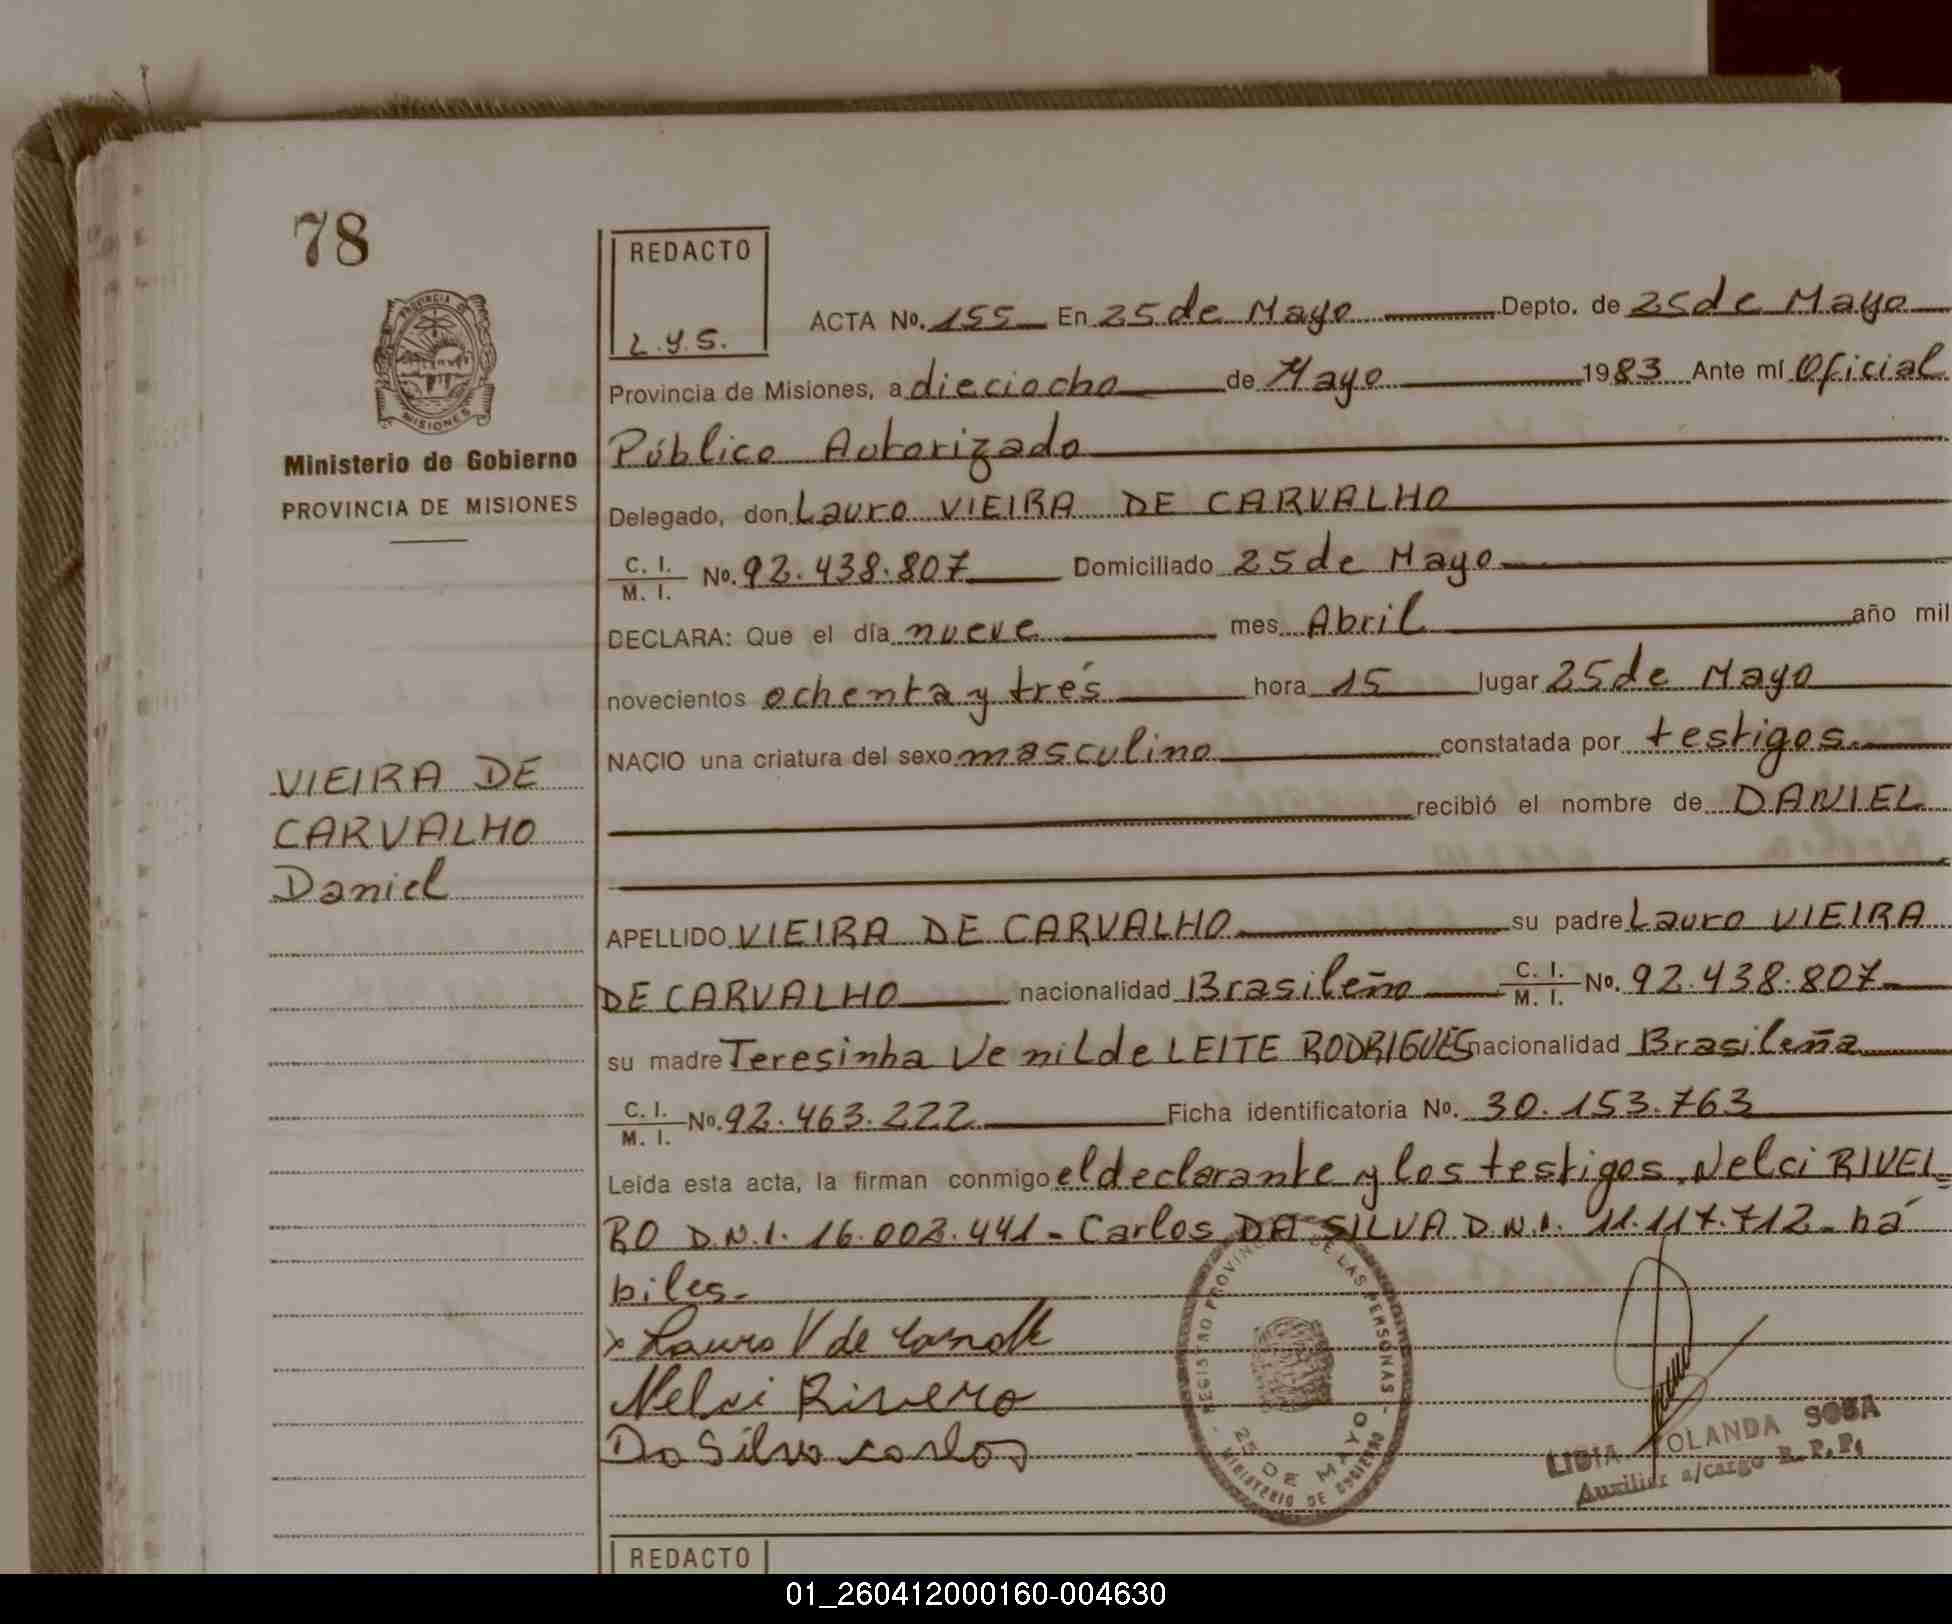 78
REDACTO
L.Y.S.
PROVINCIA DE
MISIONES
Ministerio de Gobierno
PROVINCIA DE MISIONES
ACTA No. 155 En 25 de Mayo Depto. de 25 de Mayo
Provincia de Misiones, a dieciocho de Mayo 1983 Ante mí Oficial
Público Autorizado
Delegado, don Lauro VIEIRA DE CARVALHO
C. I. / M. I. No. 92.438.807 Domiciliado 25 de Mayo
DECLARA: Que el día nueve mes Abril año mil
novecientos ochenta y trés hora 15 lugar 25 de Mayo
NACIO una criatura del sexo masculino constatada por testigos.
recibió el nombre de DANIEL
VIEIRA DE
CARVALHO
Daniel
APELLIDO VIEIRA DE CARVALHO su padre Lauro VIEIRA
DE CARVALHO nacionalidad Brasileño C. I. / M. I. No. 92.438.807
su madre Teresinha Venilde LEITE RODRIGUES nacionalidad Brasileña
C. I. / M. I. No. 92.463.222 Ficha identificatoria No. 30.153.763
Leída esta acta, la firman conmigo el declarante y los testigos. Nelci RIVEI=
RO D.N.I. 16.002.441- Carlos DA SILVA D.N.I. 11.117.712- há
biles-
x Lauro V de
Nelci Rivero
Da Silva carlos
REGISTRO PROVINCIAL DE LAS PERSONAS
25 DE MAYO
MINISTERIO DE GOBIERNO
LIDIA YOLANDA SOSA
Auxiliar a/cargo R. P. P.
REDACTO
01_260412000160-004630